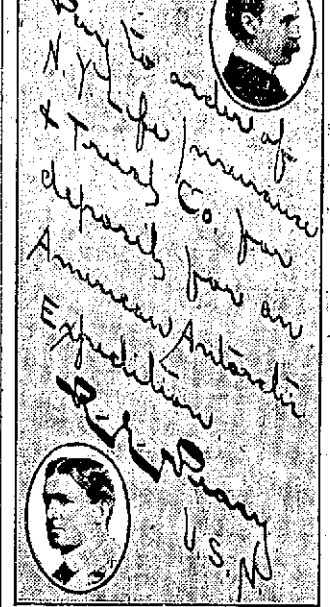 Pay to order of
N.Y. Life Insurance
& Trust Co. for
deposit for an
American Antarctic
Expedition
R. E. Peary
U.S.N.